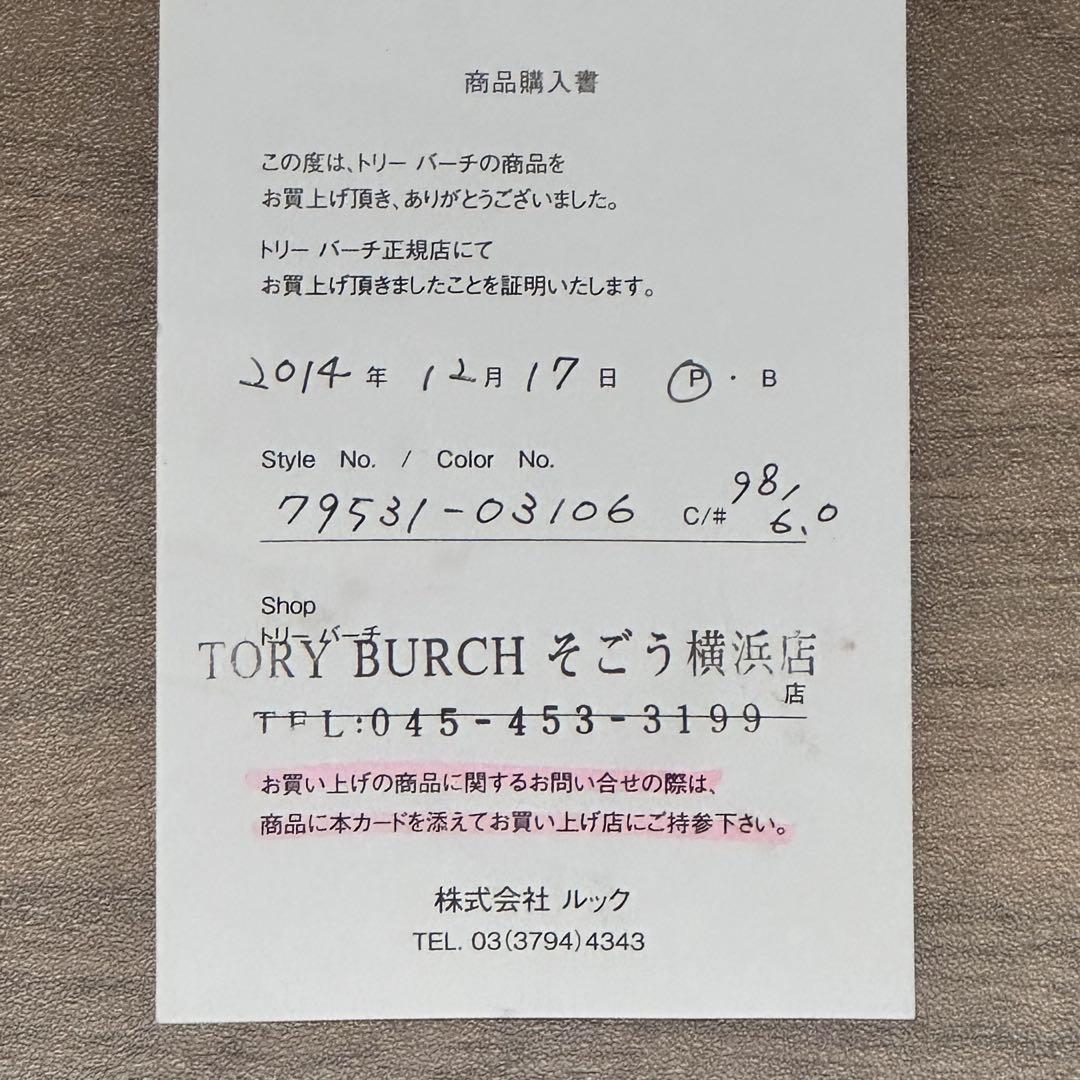 商品購入書
この度は、トリー バーチの商品を
お買上げ頂き、ありがとうございました。
トリー バーチ正規店にて
お買上げ頂きましたことを証明いたします。
2014 年 12 月 17 日 P ・ B
Style No. / Color No.
79531-03106 C/# 98/6.0
Shop
トリー バーチ
TORY BURCH そごう横浜店
店
TEL:045-453-3199
お買い上げの商品に関するお問い合せの際は、
商品に本カードを添えてお買い上げ店にご持参下さい。
株式会社 ルック
TEL. 03(3794)4343